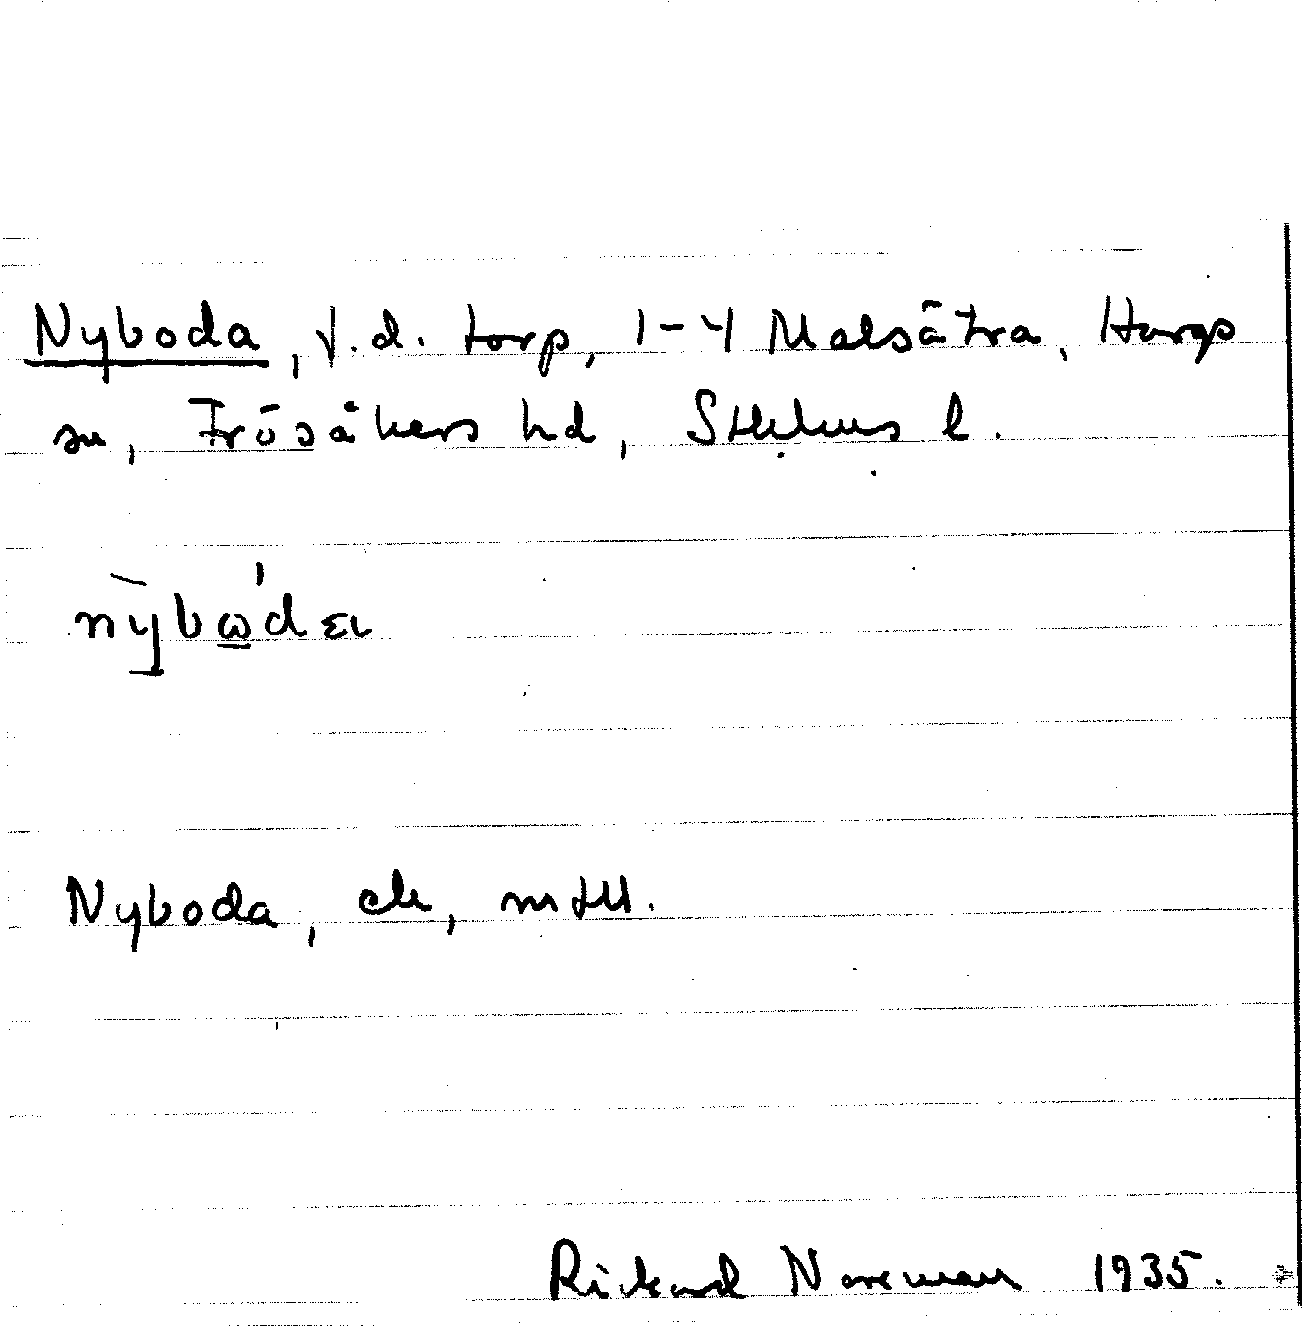 Nyboda, f.d. torp, 1-4 Malsätra, Hargs
sn, Frösåkers hd, Sthlms l.
Nyboda, ek,
Rickard Noreman 1935.